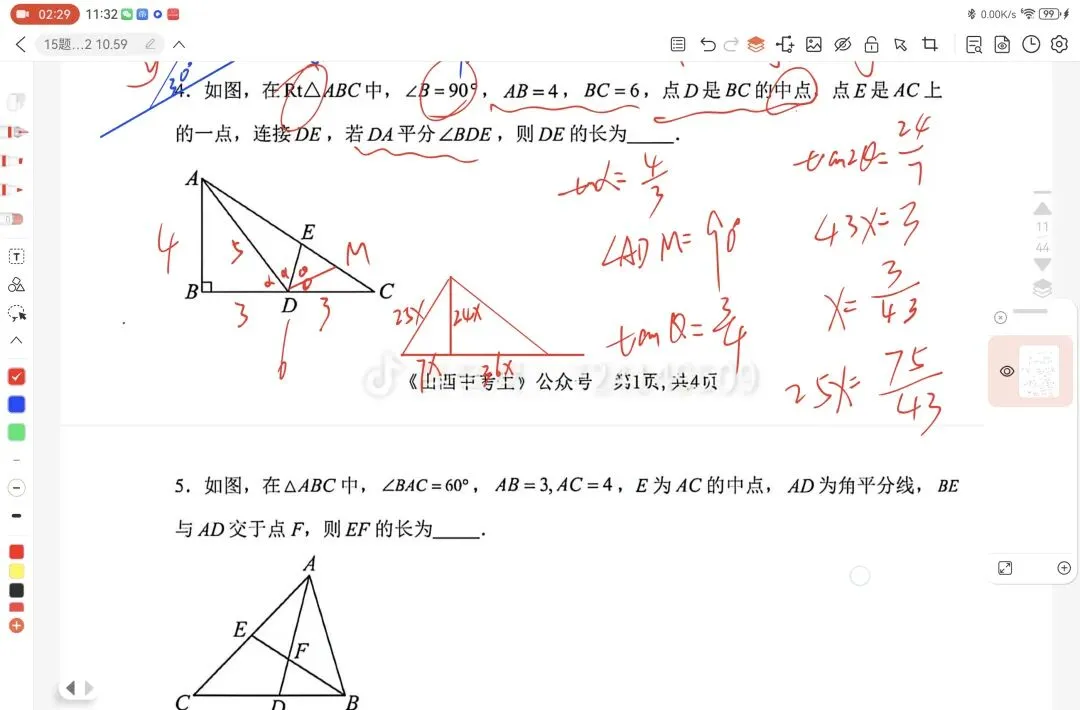 02:29 11:32 0.00K/s 99
15题...2 10.59
30°
4. 如图，在Rt△ABC中，∠B=90°，AB=4，BC=6，点D是BC的中点，点E是AC上
的一点，连接DE，若DA平分∠BDE，则DE的长为____.
tanα=4/3
tan2θ=24/7
∠ADM=90°
43x=3
tanθ=3/4
x=3/43
25x=75/43
A
E
M
4
5
α
α
θ
θ
B
D
C
3
3
6
25x
24x
7x
36x
《山西中考王》公众号 第1页，共4页
11
44
5. 如图，在△ABC中，∠BAC=60°，AB=3, AC=4，E为AC的中点，AD为角平分线，BE
与AD交于点F，则EF的长为____.
A
E
F
C
D
B